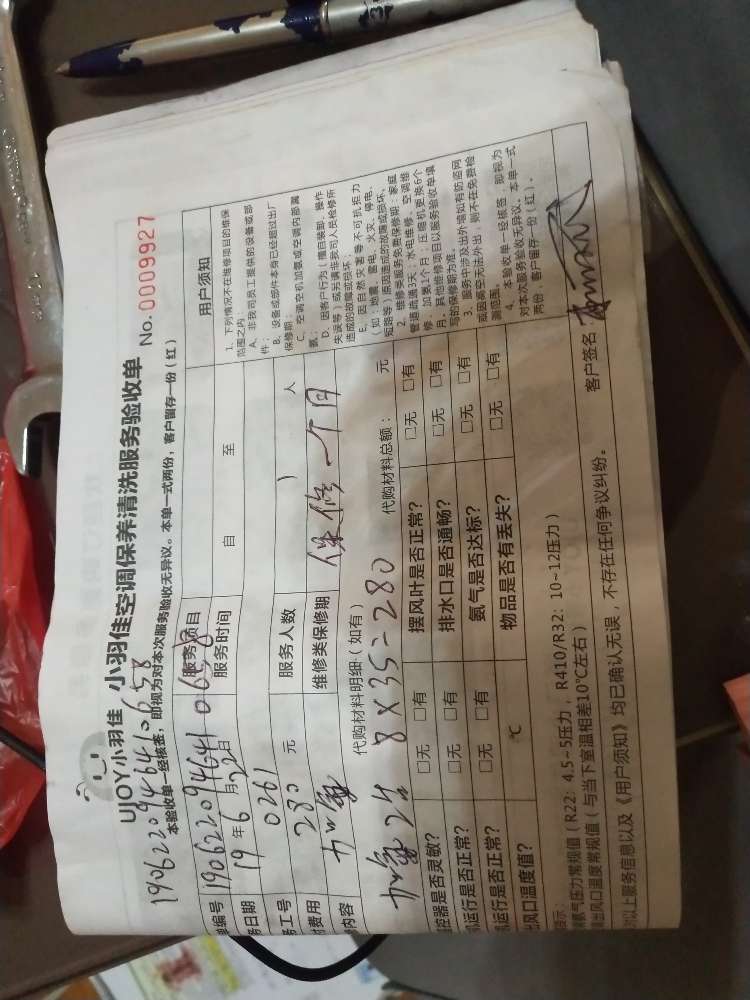 UJOY小羽佳 小羽佳空调保养清洗服务验收单
No. 0009927
本验收单一经核签，即视为对本次服务验收无异议。本单一式两份，客户留存一份（红）
190622094641065 8
单编号 190622094641 0658
服务项目
务日期 19年6月22日
服务时间 自 至
务工号 0261
服务人数 ） 人
付费用 280 元
维修类保修期 保修一个月
内容 加氟
代购材料明细：（如有）
代购材料总额： 元
加氟 8×35=280
控器是否灵敏？ □无 □有
摆风叶是否正常？ □无 □有
运行是否正常？ □无 □有
排水口是否通畅？ □无 □有
运行是否正常？ □无 □有
氨气是否达标？ □无 □有
出风口温度值？ ℃
物品是否有丢失？ □无 □有
用户须知
1、下列情况不在维修项目的维保范围之内：
A、非我司员工提供的设备或部件；
B、设备或部件本身已经超过出厂保修期；
C、空调空机加氨或空调内部漏氨；
D、因客户行为（擅自装卸、操作失误等）或另请非我司人员检修所造成的故障或损坏；
E、因自然灾害等不可抗拒力（如：地震、雷电、火灾、停电、短路等）原因造成的故障或损坏。
2、维修类服务免费保修期：家庭管道疏通3天；水电维修、空调维修、加氨1个月；压缩机更换6个月。其他维修项目以服务验收单填写的保修期为准。
3、服务中涉及出外墙如有防盗网或因高空无法外出，则不在免费检测范围。
4、本验收单一经核签，即视为对本次服务验收无异议。本单一式两份，客户留存一份（红）。
提示：
氨气压力常规值（R22：4.5~5压力，R410/R32：10~12压力）
出风口温度常规值（与当下室温相差10℃左右）
以上服务信息以及《用户须知》均已确认无误，不存在任何争议纠纷。
客户签名：